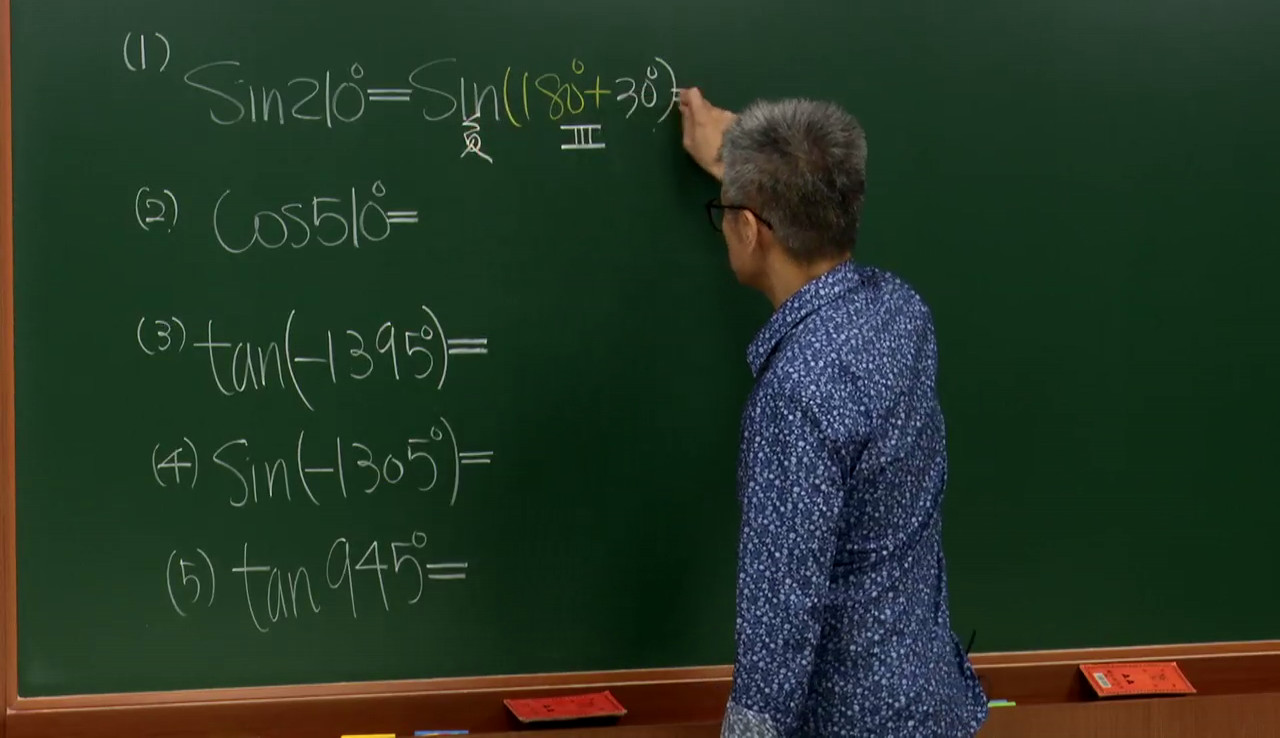 (1) Sin210°=Sin(180°+30°)=
Ⅲ
(2) Cos510°=
(3) tan(-1395°)=
(4) Sin(-1305°)=
(5) tan945°=